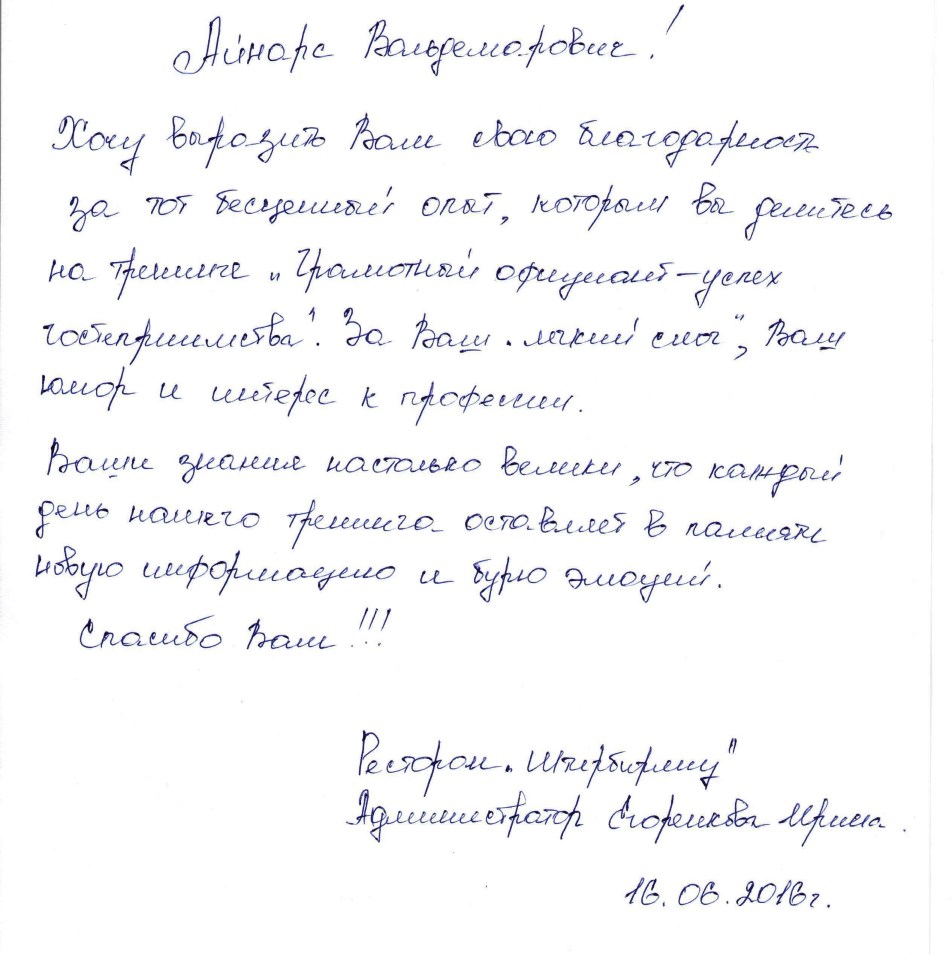 Айнарс Вальдемарович!
Хочу выразить Вам свою благодарность
за тот бесценный опыт, которым вы делитесь
на тренинге „Грамотный официант – успех
гостеприимства". За Ваш „легкий слог", Ваш
юмор и интерес к профессии.
Ваши знания настолько велики, что каждый
день нашего тренинга оставляет в памяти
новую информацию и бурю эмоций.
Спасибо Вам!!!
Ресторан
Администратор Ирина.
16.06.2016г.